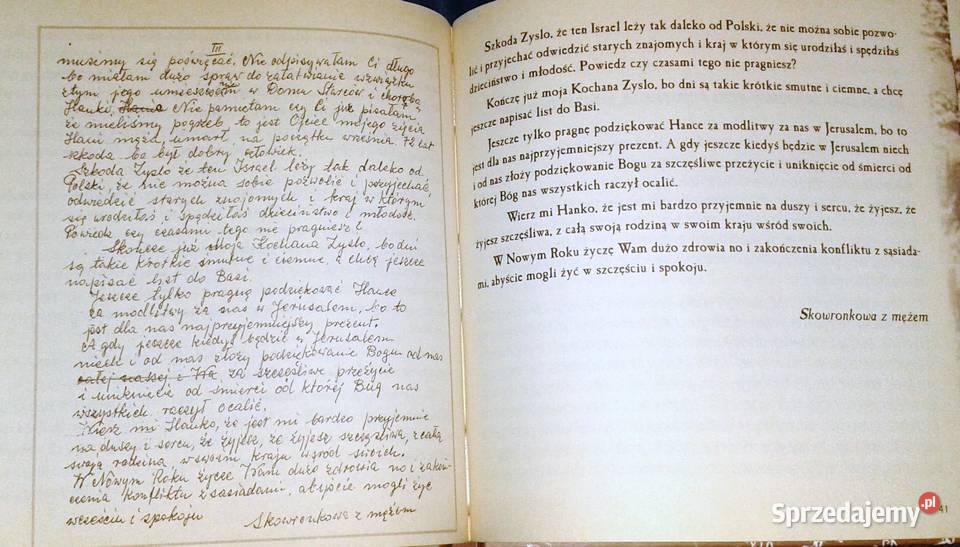 III
musimy się poświęcać. Nie odpisywałam Ci długo
bo miałam dużo spraw do załatwiania wzwiązku
ztym jego umieszczeń w Domu Starców i chorobą
Hanki, Hania Nie pamiętam czy Ci już pisałam
że mieliśmy pogrzeb to jest Ojciec mojego zięcia
Hani mąż, umarł na początku września, 72 lat
szkoda bo był dobry człowiek.
Szkoda Zyslo że ten Israel leży tak daleko od
Polski, że nie można sobie pozwolić i przyjechać,
odwiedzić starych znajomych i kraj w którym
się urodziłaś i spędziłaś dzieciństwo i młodość.
Powiedz czy czasami tego nie pragniesz?
Skończę już moja Kochana Zyslo, bo dni
są takie krótkie smutne i ciemne, a chcę jeszcze
napisać list do Basi.
Jeszcze tylko pragnę podziękować Hance
za modlitwy za nas w Jerusalem, bo to
jest dla nas najprzyjemniejszy prezent.
A gdy jeszcze kiedyś będzie w Jerusalem
niech i od nas złoży podziękowanie Bogu od nas
całej naszej za szczęśliwe przeżycie
i uniknięcie od śmierci od której Bóg nas
wszystkich raczył ocalić.
Wierz mi Hanko, że jest mi bardzo przyjemnie
na duszy i sercu, że żyjesz, że żyjesz szczęśliwa, z całą
swoją rodziną w swoim kraju wśród swoich.
W Nowym Roku życzę Wam dużo zdrowia no i zakoń-
czenia konfliktu z sąsiadami, abyście mogli żyć
w szczęściu i spokoju
Skowronkowa z mężem
Szkoda Zyslo, że ten Israel leży tak daleko od Polski, że nie można sobie pozwo-
lić i przyjechać odwiedzić starych znajomych i kraj w którym się urodziłaś i spędziłaś
dzieciństwo i młodość. Powiedz czy czasami tego nie pragniesz?
Kończę już moja Kochana Zyslo, bo dni są takie krótkie smutne i ciemne, a chcę
jeszcze napisać list do Basi.
Jeszcze tylko pragnę podziękować Hance za modlitwy za nas w Jerusalem, bo to
jest dla nas najprzyjemniejszy prezent. A gdy jeszcze kiedyś będzie w Jerusalem niech
i od nas złoży podziękowanie Bogu za szczęśliwe przeżycie i uniknięcie od śmierci od
której Bóg nas wszystkich raczył ocalić.
Wierz mi Hanko, że jest mi bardzo przyjemnie na duszy i sercu, że żyjesz, że
żyjesz szczęśliwa, z całą swoją rodziną w swoim kraju wśród swoich.
W Nowym Roku życzę Wam dużo zdrowia no i zakończenia konfliktu z sąsiada-
mi, abyście mogli żyć w szczęściu i spokoju.
Skowronkowa z mężem
41
Sprzedajemy.pl